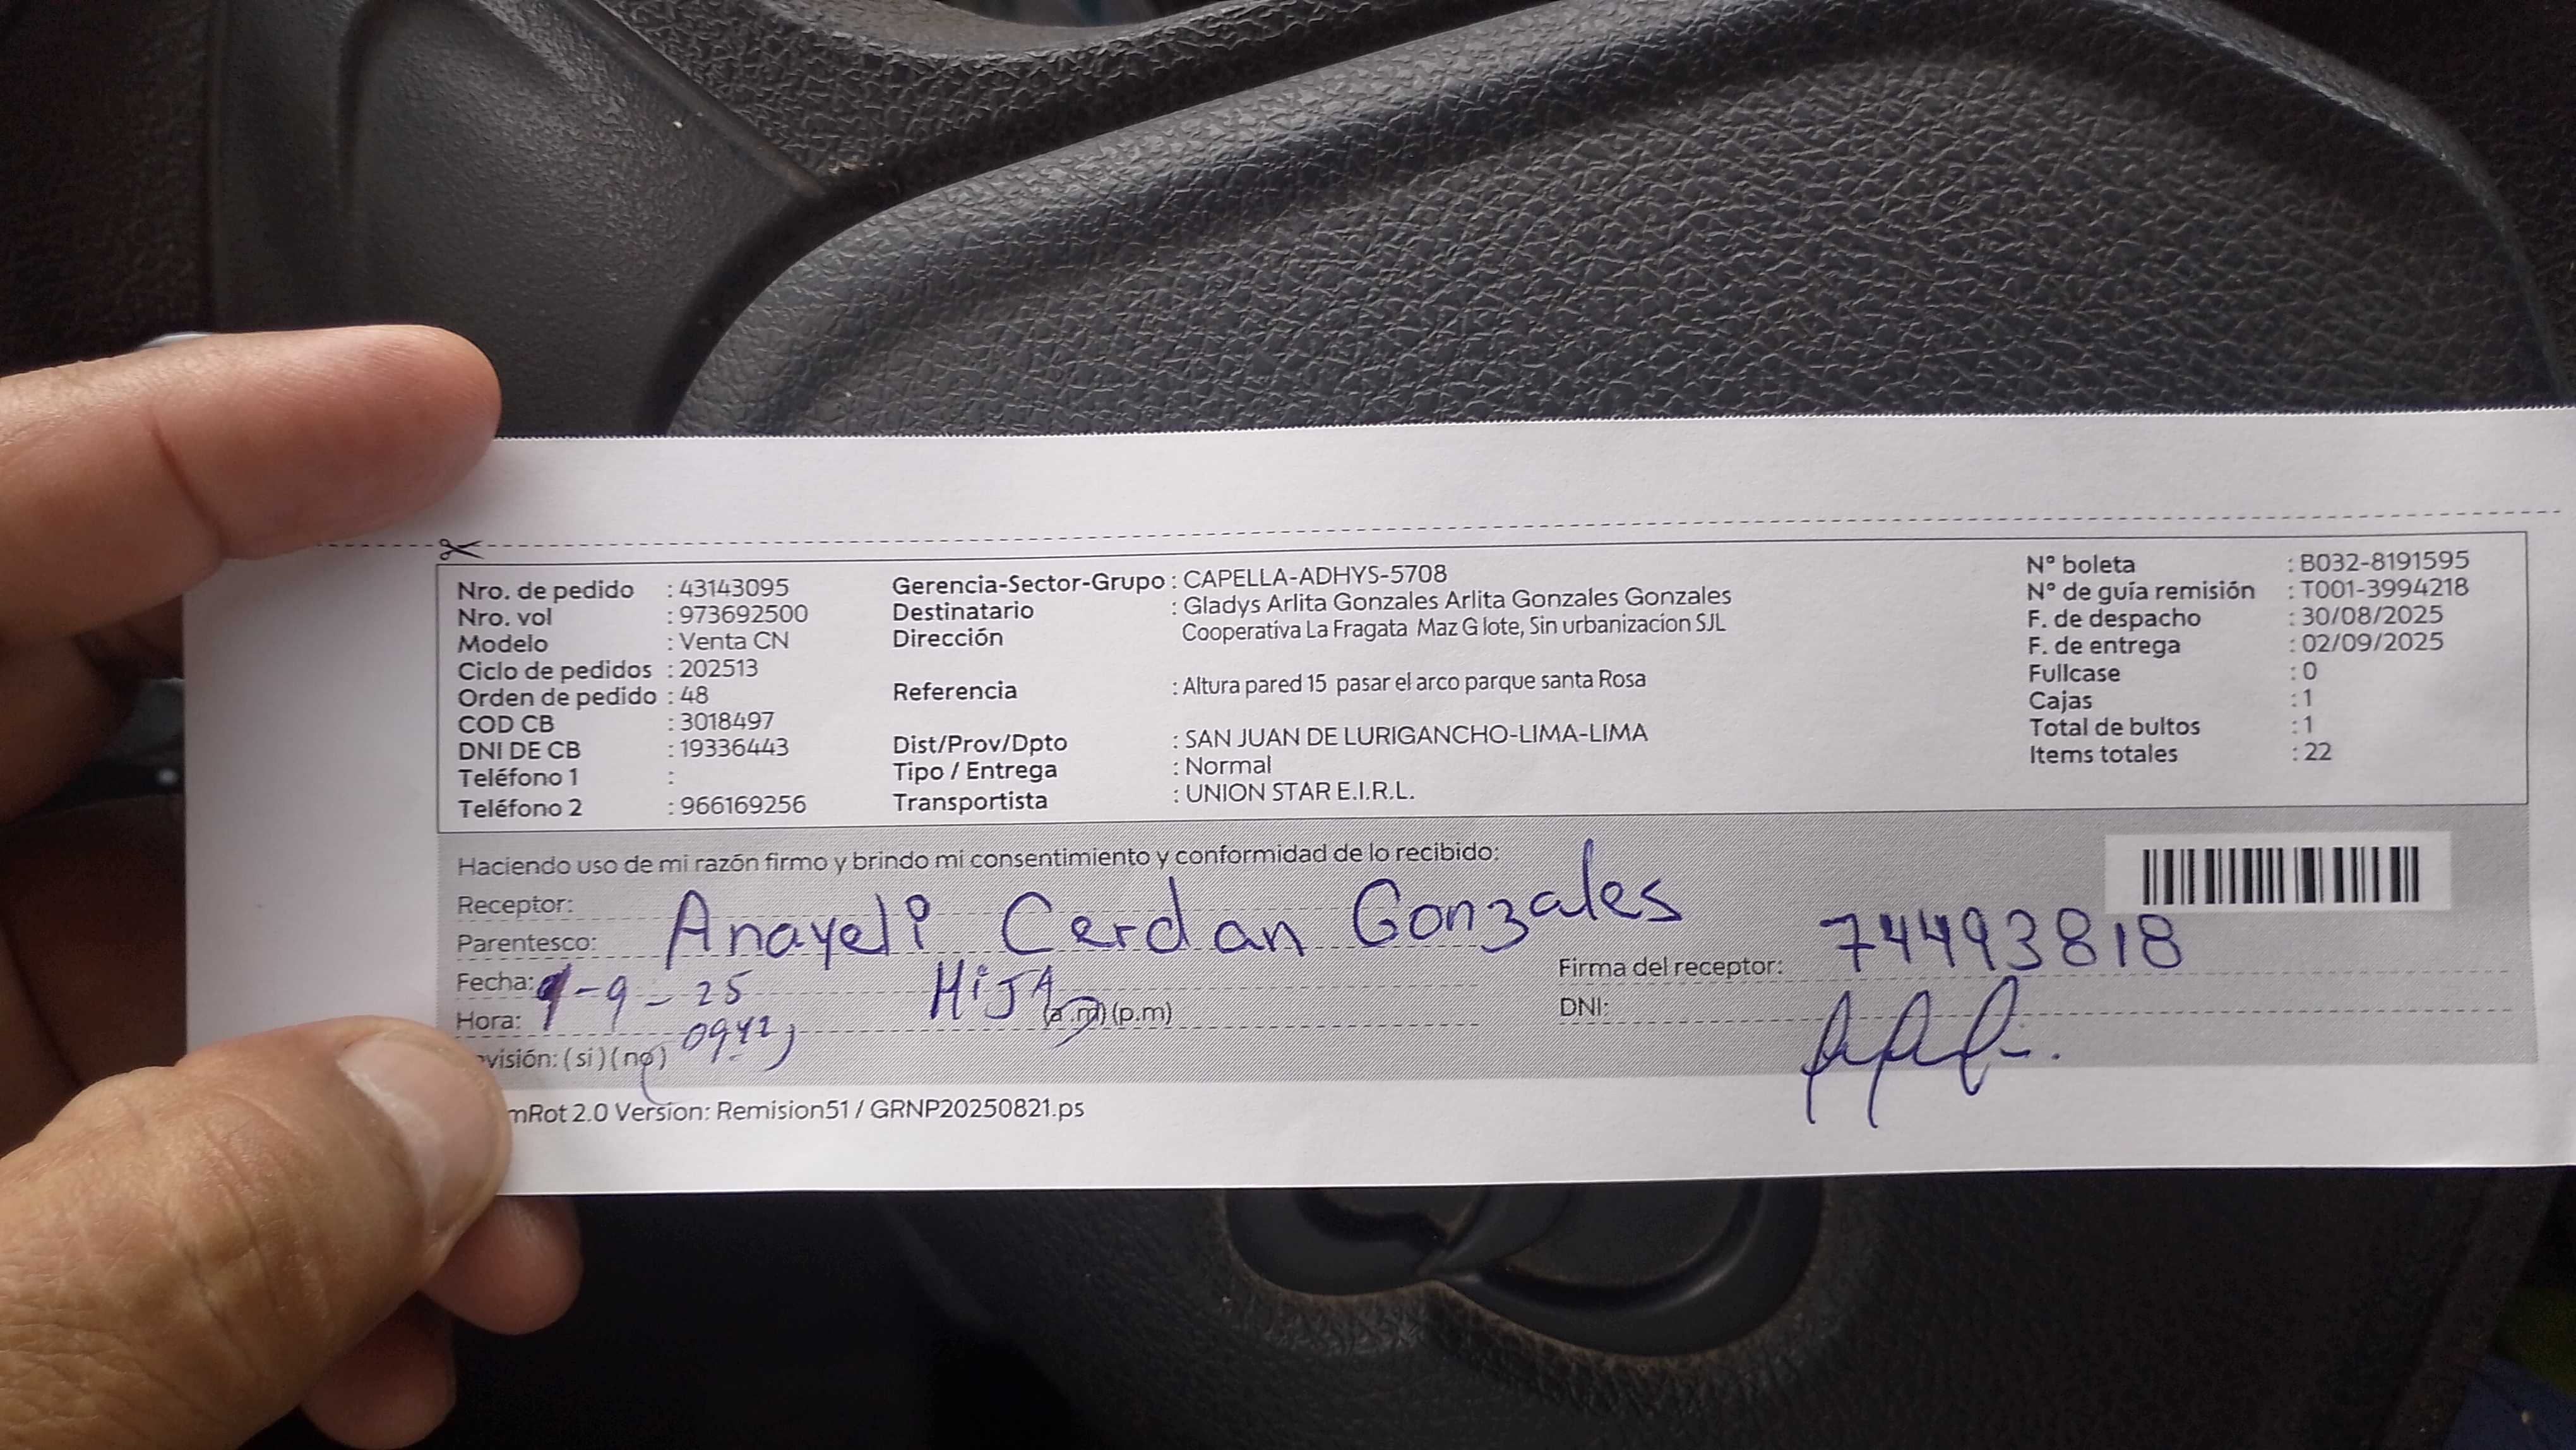 Nro. de pedido : 43143095
Nro. vol : 973692500
Modelo : Venta CN
Ciclo de pedidos : 202513
Orden de pedido : 48
COD CB : 3018497
DNI DE CB : 19336443
Teléfono 1 :
Teléfono 2 : 966169256
Gerencia-Sector-Grupo : CAPELLA-ADHYS-5708
Destinatario : Gladys Arlita Gonzales Arlita Gonzales Gonzales
Dirección Cooperativa La Fragata Maz G lote, Sin urbanizacion SJL
Referencia : Altura pared 15 pasar el arco parque santa Rosa
Dist/Prov/Dpto : SAN JUAN DE LURIGANCHO-LIMA-LIMA
Tipo / Entrega : Normal
Transportista : UNION STAR E.I.R.L.
N° boleta : B032-8191595
N° de guía remisión : T001-3994218
F. de despacho : 30/08/2025
F. de entrega : 02/09/2025
Fullcase : 0
Cajas : 1
Total de bultos : 1
Items totales : 22
Haciendo uso de mi razón firmo y brindo mi consentimiento y conformidad de lo recibido:
Receptor:
Parentesco: Anayeli Cerdan Gonzales
Fecha: -9-25 HiJA
Hora: (a.m) (p.m)
visión: (si) (no)
74493818
Firma del receptor:
DNI:
mRot 2.0 Version: Remision51 / GRNP20250821.ps